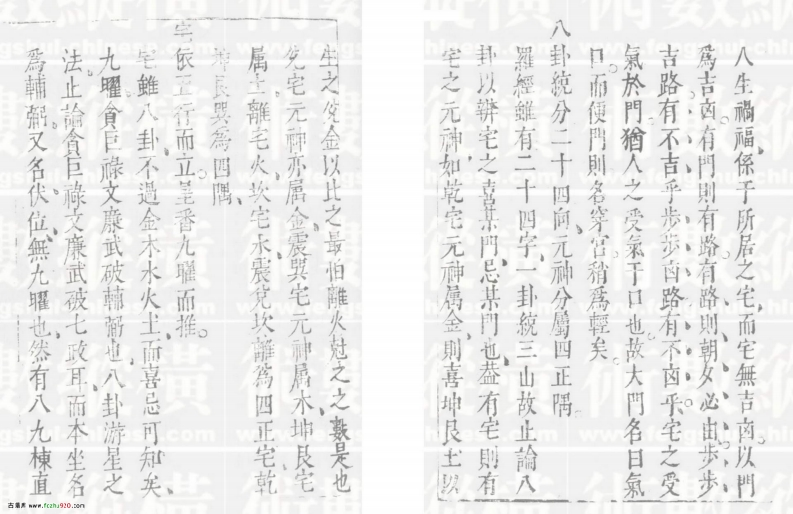 人生禍福係于所居之宅而宅無吉凶以門
為吉凶有門則有路有路則朝夕必由步步
吉路有不吉乎步步凶路有不凶乎宅之受
氣於門猶人之受氣于口也故大門名曰氣
口而便門則名穿宮稍為輕矣
八卦統分二十四向元神分屬四正隅
羅經雖有二十四字一卦統三山故止論八
卦以辨宅之喜某門忌某門也葢有宅則有
宅之元神如乾宅元神属金則喜坤艮土以
生之兌金以比之最怕離火尅之之數是也
兌宅元神亦属金震巽宅元神属木坤艮宅
属土離宅火坎宅水震兌坎離為四正宅乾
坤艮巽為四隅
宅依五行而立星番九曜而推
宅雖八卦不過金木水火土而喜忌可知矣
九曜貪巨祿文廉武破輔弼也八卦游星之
法止論貪巨祿文廉武破七政耳而本坐名
為輔弼又名伏位無九曜也然有八九棟直
古湯房 www.fczhu920.com